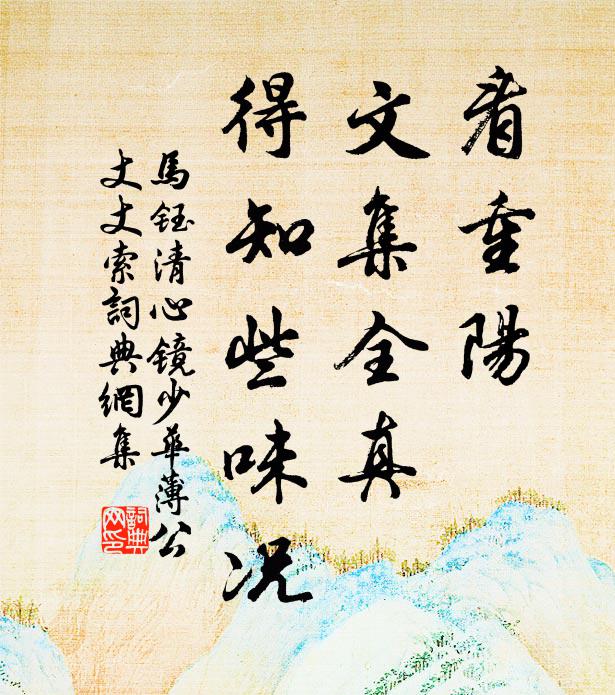 看重陽
文集全真
得知些味况
馬鈺清心鏡少華薄公
丈丈索詞典網集
詞典
网印